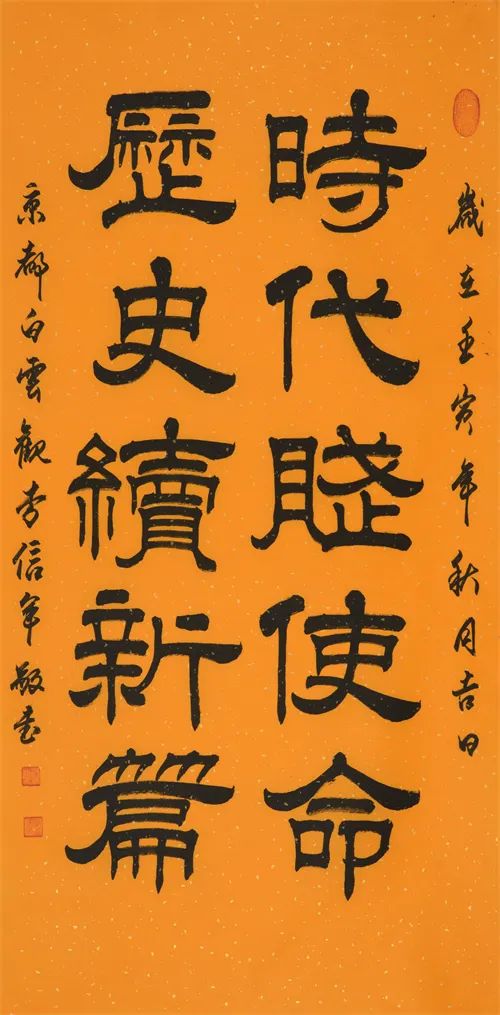 歲在壬寅年秋月吉日
時代賦使命
歷史續新篇
京都白雲觀李信軍敬書